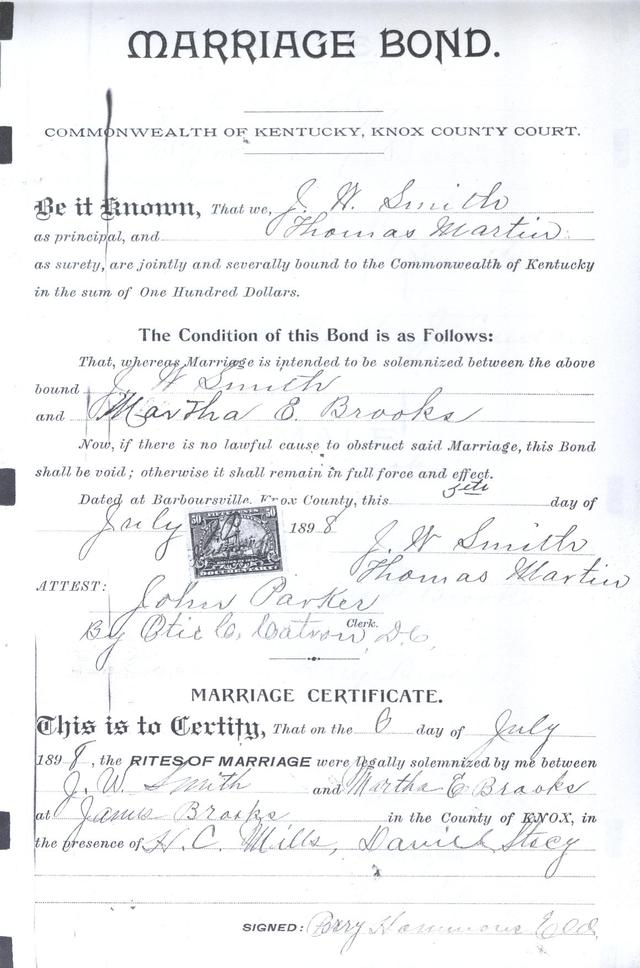 MARRIAGE BOND.
COMMONWEALTH OF KENTUCKY, KNOX COUNTY COURT.
Be it Known, That we, J. W. Smith
as principal, and Thomas Martin
as surety, are jointly and severally bound to the Commonwealth of Kentucky
in the sum of One Hundred Dollars.
The Condition of this Bond is as Follows:
That, whereas Marriage is intended to be solemnized between the above
bound J W Smith
and Martha E. Brooks
Now, if there is no lawful cause to obstruct said Marriage, this Bond
shall be void; otherwise it shall remain in full force and effect.
Dated at Barboursville, Knox County, this 5th day of
July 1898
50 FIFTY CENTS 50
DOCUMENTARY
J. W Smith
Thomas Martin
ATTEST: John Parker
Clerk.
By Otis C. Catron, D.C.
MARRIAGE CERTIFICATE.
This is to Certify, That on the 6 day of July
1898, the RITES OF MARRIAGE were legally solemnized by me between
J. W. Smith and Martha E Brooks
at James Brooks in the County of KNOX, in
the presence of H. C. Mills, Daniel Stacy
SIGNED: Perry Hammons